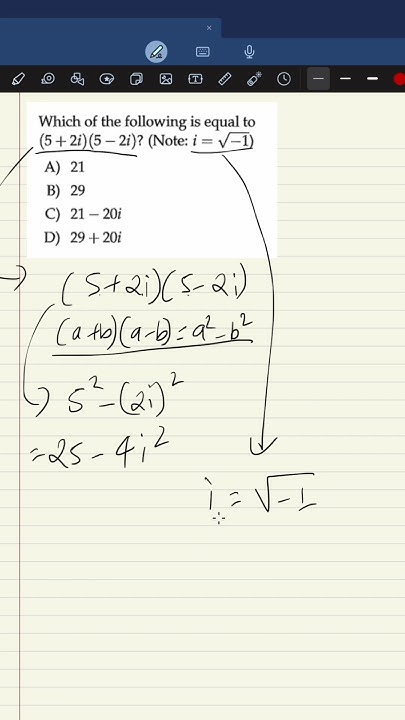 Which of the following is equal to
(5 + 2i)(5 − 2i)? (Note: i = √−1)
A) 21
B) 29
C) 21 − 20i
D) 29 + 20i
(5+2i)(5-2i)
(a+b)(a-b)=a²-b²
5²-(2i)²
=25-4i²
i=√-1